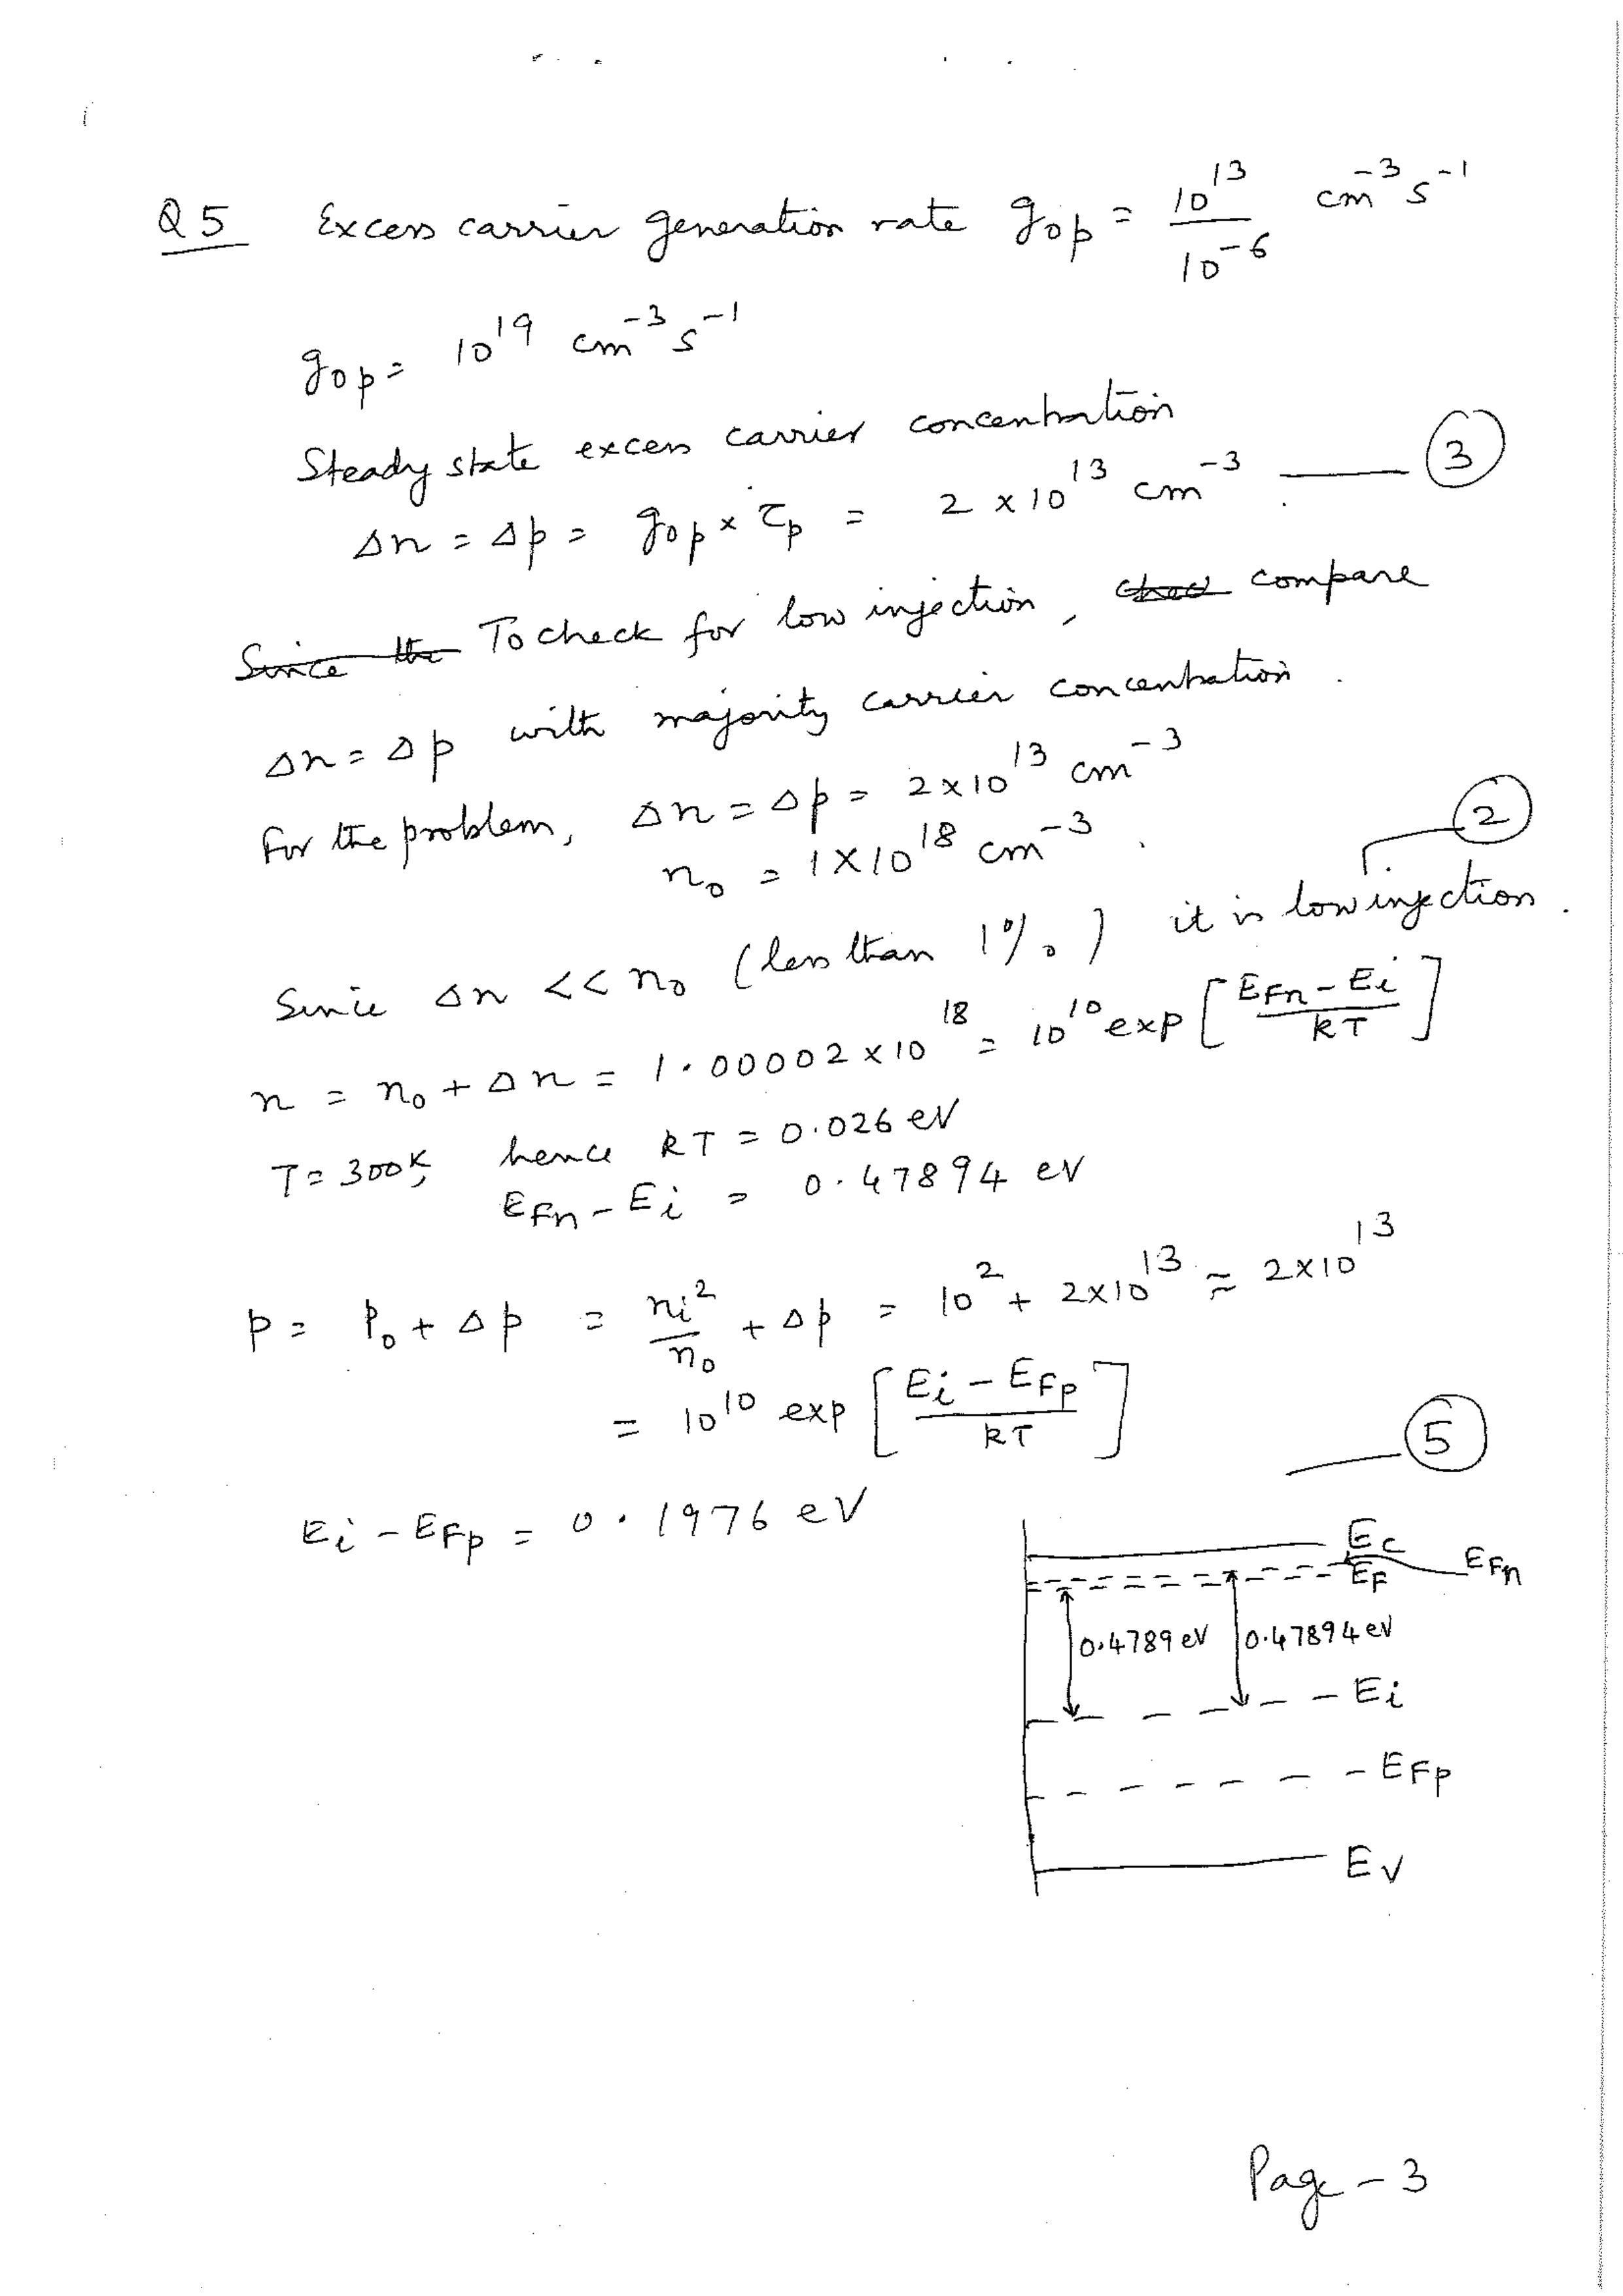 Q5 Excess carrier generation rate gop = 10^13 / 10^-6 cm^-3 s^-1
gop = 10^19 cm^-3 s^-1
Steady state excess carrier concentration
Δn = Δp = gop × τp = 2 × 10^13 cm^-3 — 3
Since the To check for low injection, compare
Δn = Δp with majority carrier concentration.
For the problem, Δn = Δp = 2×10^13 cm^-3
n₀ = 1×10^18 cm^-3. 2
Since Δn << n₀ (less than 1%) it is low injection.
n = n₀ + Δn = 1.00002 × 10^18 = 10^10 exp [ (EFn - Ei) / kT ]
T = 300K, hence kT = 0.026 eV
EFn - Ei = 0.47894 eV
p = P₀ + Δp = ni² / n₀ + Δp = 10^2 + 2×10^13 ≈ 2×10^13
= 10^10 exp [ (Ei - EFp) / kT ]
5
Ei - EFp = 0.1976 eV
Ec
EF EFn
0.4789 eV 0.47894 eV
Ei
EFp
Ev
Page - 3